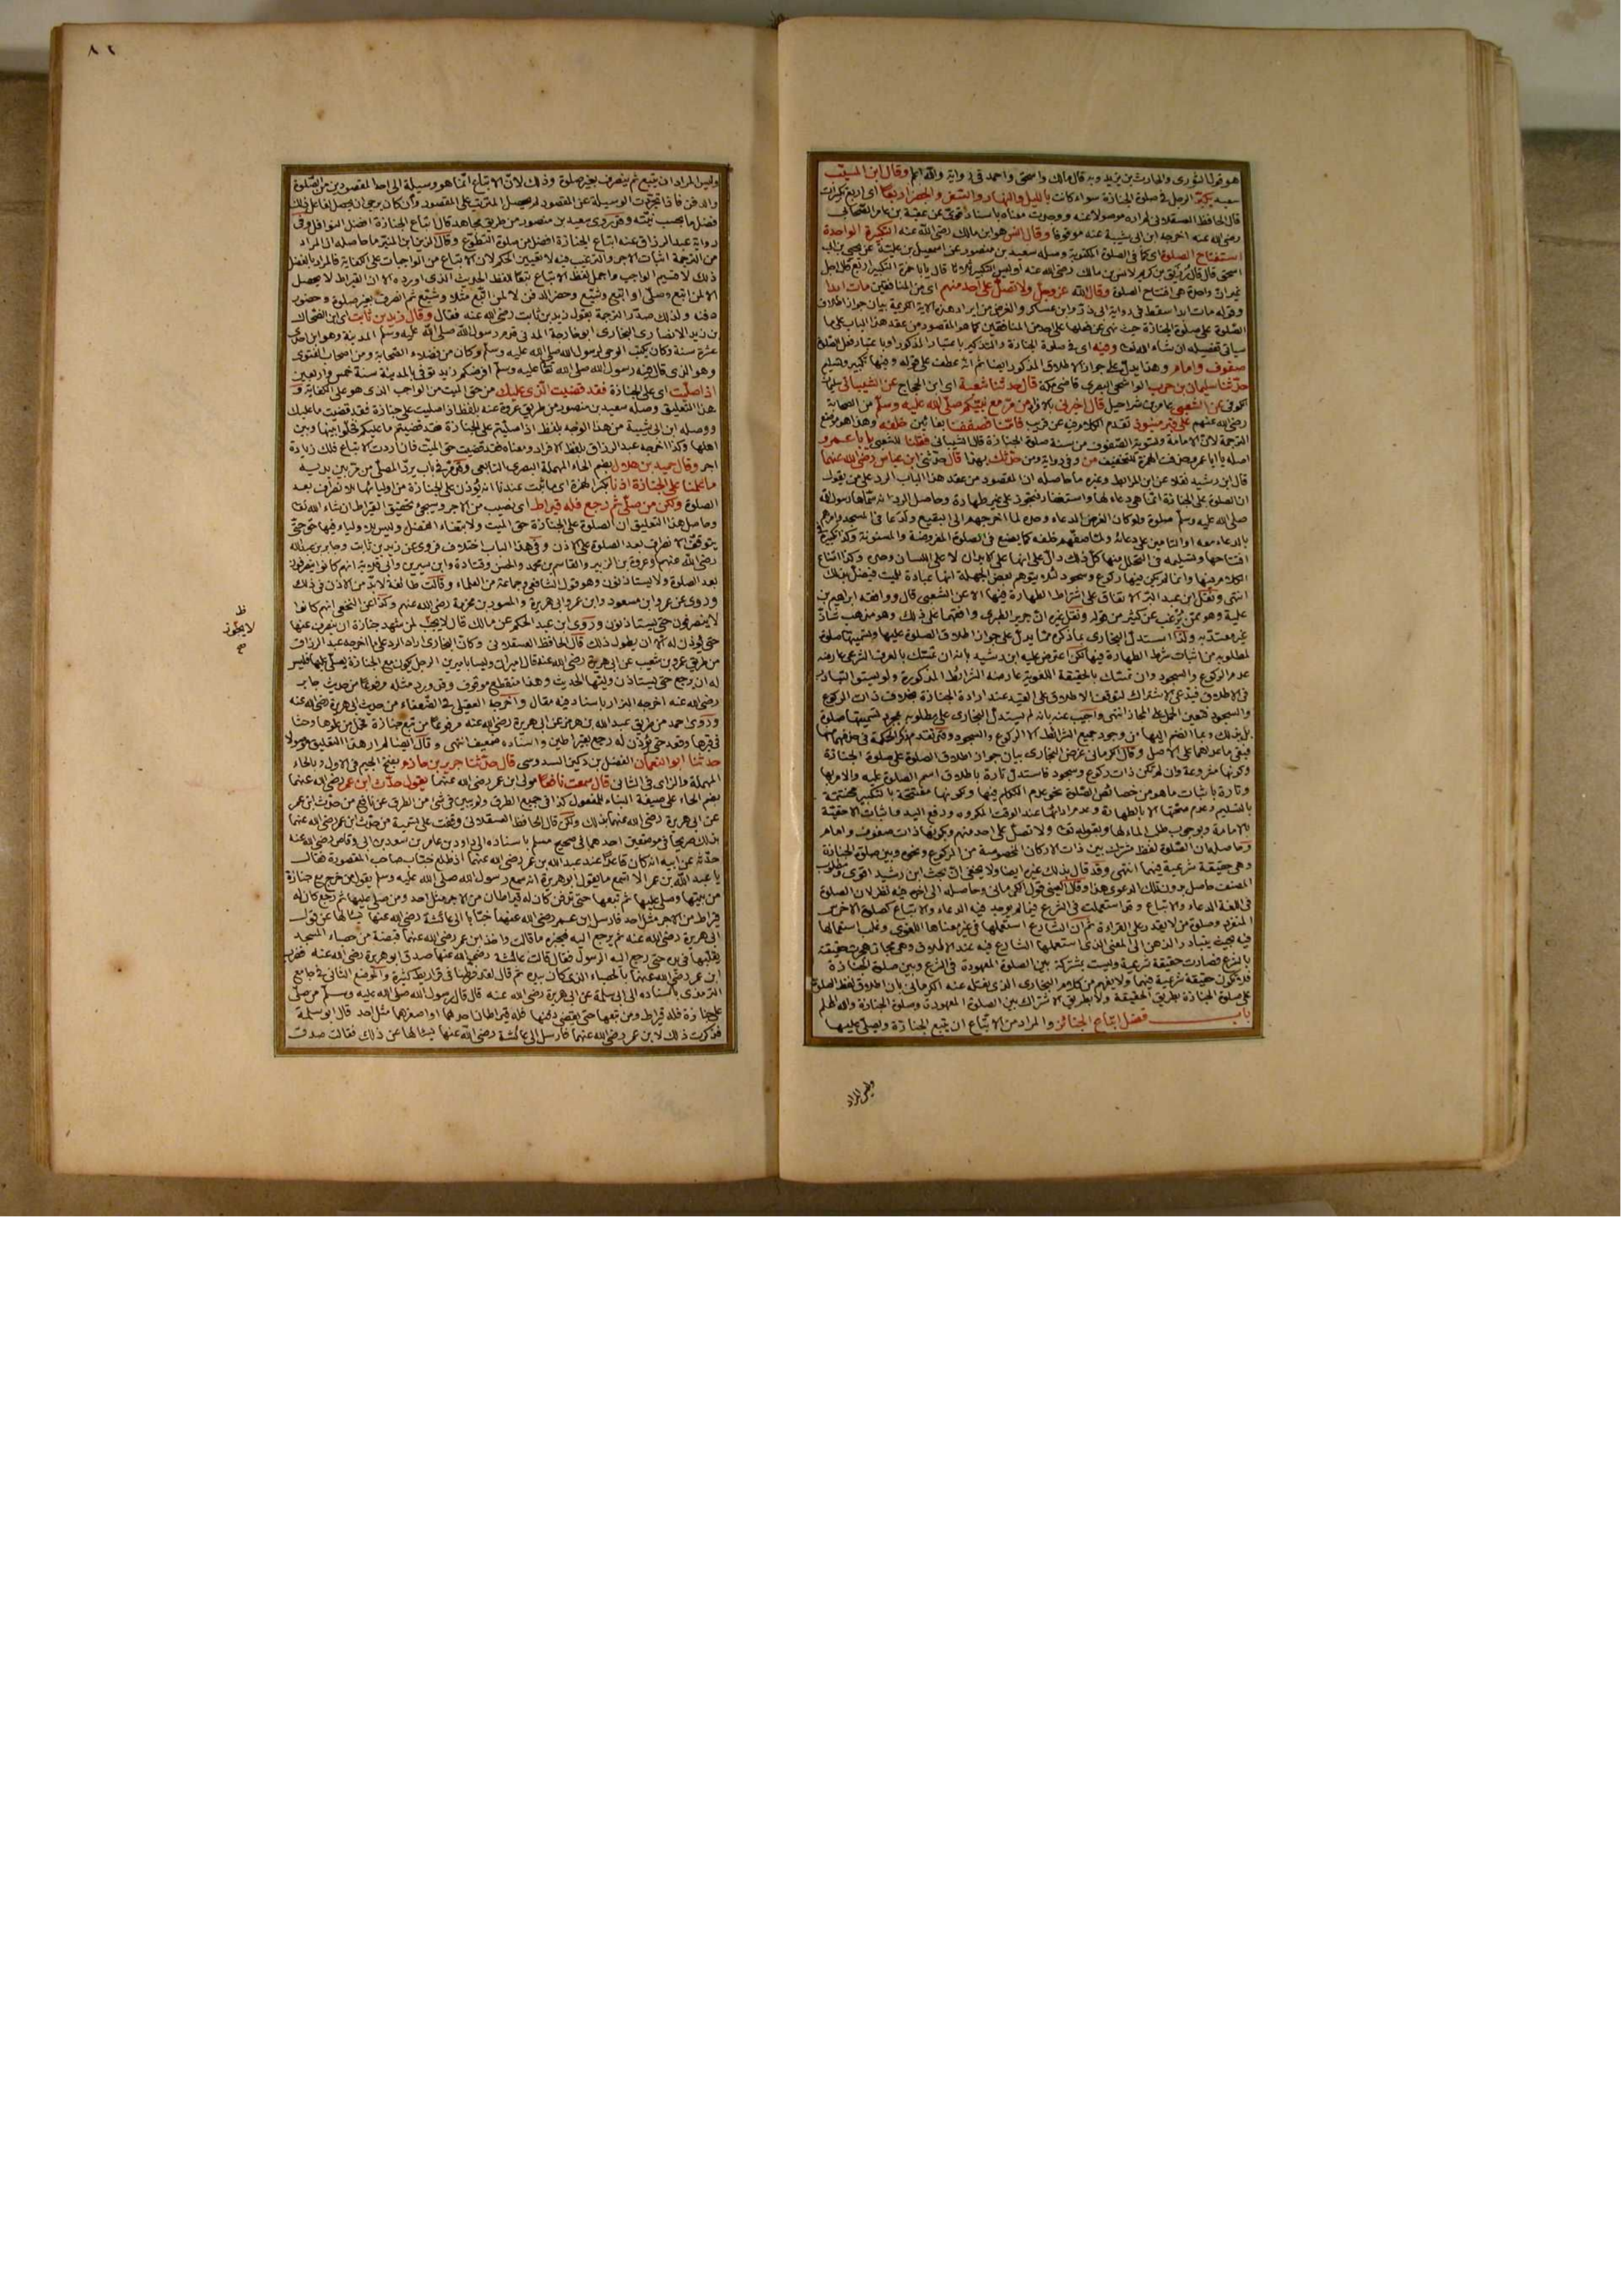 هو قول الثوري والحارث بن يزيد وبه قال مالك واسحق واحمد في رواية والله اعلم وقال ابن المسيب
سعيد يكبر الرجل في صلوة الجنازة سواء كانت بالليل والنهار والسفر والحضر اربعا اى اربع تكبيرات
قال الحافظ العسقلاني لم اره موصولا عنه ووجدت معناه باسناد قوى عن عقبة بن عامر الصحابي
رضي الله عنه اخرجه ابن ابي شيبة عنه موقوفا وقال انس هو ابن مالك رضي الله عنه التكبيرة الواحدة
استفتاح الصلوة اى كما في الصلوة المكتوبة وصله سعيد بن منصور عن اسمعيل بن علية عن يحيى بن ابي
اسحق قال قال رزيق بن كريم لانس بن مالك رضي الله عنه اوليس التكبير ثلاثا قال يا ابا حمزة التكبير اربع قال اجل
غير ان واحدة هي افتتاح الصلوة وقال الله عز وجل ولا تصل على احد منهم اى من المنافقين مات ابدا
وقوله مات ابدا سقط في رواية ابي ذر وابن عساكر والغرض من ايراد هذه الاية الكريمة بيان جواز اطلاق
الصلوة على صلوة الجنازة حيث نهى عن فعلها على احد من المنافقين كما هو المقصود من عقد هذا الباب على ما
سياتي تفصيله ان شاء الله تعالى وفيه اى في صلوة الجنازة والتذكير باعتبار المذكور او باعتبار فعل الصلوة
صفوف وامام وهذا يدل على جواز الاطلاق المذكور ايضا ثم انه عطف على قوله وفيها تكبير وتسليم
حدثنا سليمان بن حرب الواشحي البصري قاضي مكة قال حدثنا شعبة اى ابن الحجاج عن الشيباني سليمان
الكوفي عن الشعبي عامر بن شراحيل قال اخبرني بالافراد من مر مع نبيكم صلى الله عليه وسلم من الصحابة
رضي الله عنهم على قبر منبوذ تقدم الكلام فيه عن قريب فامنا فصففنا بفائين خلفه وهذا هو موضع
الترجمة لان الامامة وتسوية الصفوف من سنة صلوة الجنازة قال الشيباني فقلنا للشعبي يا با عمرو
اصله يا ابا عمرو حذفت الهمزة للتخفيف من وفي رواية ومن حدثك بهذا قال حدثني ابن عباس رضي الله عنهما
قال ابن رشيد نقلا عن ابن المرابط وغيره ما حاصله ان المقصود من عقد هذا الباب الرد على من يقول
ان الصلوة على الجنازة انما هي دعاء لها واستغفار فتجوز على غير طهارة وحاصل الرد انه سماها رسول الله
صلى الله عليه وسلم صلوة ولو كان الغرض الدعاء وحده لما اخرجهم الى البقيع ولدعا في المسجد وامرهم
بالدعاء معه او التامين على دعائه ولما صفهم خلفه كما يصنع في الصلوة المفروضة والمسنونة وكذا تكبيره في
افتتاحها وتسليمه في التحلل منها كل ذلك دال على انها على الابدان لا على اللسان وحده وكذا امتناع
الكلام فيها وانما لم يكن فيها ركوع وسجود لئلا يتوهم بعض الجهلة انها عبادة للميت فيضل بذلك
انتهى ونقل ابن عبد البر الاتفاق على اشتراط الطهارة فيها الا عن الشعبي قال ووافقه ابراهيم بن
علية وهو ممن يرغب عن كثير من قوله ونقل غيره ان جرير الطبري وافقهما على ذلك وهو مذهب شاذ
غير معتد به ولذا استدل البخاري بما ذكره مما يدل على جواز اطلاق الصلوة عليها وتسميتها صلوة
لمطلوبه من اثبات شرط الطهارة فيها لكن اعترض عليه ابن رشيد بانه ان تمسك بالعرف الشرعي عارضه
عدم الركوع والسجود وان تمسك بالحقيقة اللغوية عارضته الشرائط المذكورة ولم يستو التبادر
في الاطلاق فيدعى الاشتراك لتوقف الاطلاق على القيد عند ارادة الجنازة بخلاف ذات الركوع
والسجود فتعين الحمل على المجاز انتهى واجيب عنه بانه لم يستدل البخاري على مطلوبه بمجرد تسميتها صلوة
بل بذلك وبما انضم اليها من وجود جميع الشرائط الا الركوع والسجود وقد تقدم ذكر الحكمة في حذفهما منها
فبقي ما عداهما على الاصل وقال الكرماني غرض البخاري بيان جواز اطلاق الصلوة على صلوة الجنازة
وكونها مشروعة وان لم تكن ذات ركوع وسجود فاستدل تارة باطلاق اسم الصلوة عليه والامر بها
وتارة باثبات ما هو من خصائص الصلوة نحو عدم التكلم فيها وكونها مفتتحة بالتكبير مختتمة
بالتسليم وعدم صحتها الا بالطهارة وعدم ادائها عند الوقت المكروه ورفع اليد واثبات الاحقية
بالامامة وبوجوب طلب الماء لها وبقوله تعالى ولا تصل على احد منهم وبكونها ذات صفوف وامام
وحاصله ان الصلوة لفظ مشترك بين ذات الاركان المخصوصة من الركوع ونحوه وبين صلوة الجنازة
وهي حقيقة شرعية فيهما انتهى وقد قال بذلك غيره ايضا ولا يخفى ان بحث ابن رشيد اقوى ومطلوب
المصنف حاصل بدون تلك الدعوى هذا وقال العيني قول الكرماني وحاصله الى اخره فيه نظر لان الصلوة
في اللغة الدعاء والاتباع وقد استعملت في الشرع فيما لم يوجد فيه الدعاء والاتباع كصلوة الاخرس
المنفرد وصلوة من لا يقدر على القراءة ثم ان الشارع استعملها في غير معناها اللغوي وغلب استعمالها
فيه بحيث يتبادر الذهن الى المعنى الذي استعملها الشارع فيه عند الاطلاق وهي مجاز هجرت حقيقته
بالشرع فصارت حقيقة شرعية وليست بمشتركة بين الصلوة المعهودة في الشرع وبين صلوة الجنازة
فلا تكون حقيقة شرعية فيهما ولا يفهم من كلام البخاري الذي نقله عنه الكرماني بان اطلاق لفظ الصلوة
على صلوة الجنازة بطريق الحقيقة ولا بطريق الاشتراك بين الصلوة المعهودة وصلوة الجنازة والله اعلم
باب فضل اتباع الجنائز والمراد من الاتباع ان يتبع الجنازة ويصلى عليها
وليس المراد
٨٢
وليس المراد ان يتبع ثم ينصرف بغير صلوة وذلك لان الاتباع انما هو وسيلة الى احد المقصودين من الصلوة
والدفن فاذا تجردت الوسيلة عن المقصود لم يحصل المترتب على المقصود وان كان يرجى ان يحصل لفاعل ذلك
فضل ما بحسب نيته وقد روى سعيد بن منصور من طريق مجاهد قال اتباع الجنازة افضل النوافل وفي
رواية عبد الرزاق عنه اتباع الجنازة افضل من صلوة التطوع وقال الزين ابن المنير ما حاصله ان المراد
من الترجمة اثبات الاجر والترغيب فيه لا تعيين الحكم لان الاتباع من الواجبات على الكفاية فالمراد بالفضل
ذلك لا قسيم الواجب واجمل لفظ الاتباع تبعا للفظ الحديث الذي اورده لان القيراط لا يحصل
الا لمن اتبع وصلى او اتبع وشيع وحضر الدفن لا لمن اتبع مثلا وشيع ثم انصرف بغير صلوة وحضور
دفنه ولذلك صدر الترجمة بقول زيد بن ثابت رضي الله عنه فقال وقال زيد بن ثابت اى ابن الضحاك
بن زيد الانصاري البخاري ابو خارجة المدني قدم رسول الله صلى الله عليه وسلم المدينة وهو ابن احدى
عشرة سنة وكان يكتب الوحي لرسول الله صلى الله عليه وسلم وكان من فضلاء الصحابة ومن اصحاب الفتوى
وهو الذي قال فيه رسول الله صلى الله تعالى عليه وسلم افرضكم زيد توفي بالمدينة سنة خمس واربعين
اذا صليت اى على الجنازة فقد قضيت الذي عليك من حق الميت من الواجب الذي هو على الكفاية و
هذا التعليق وصله سعيد بن منصور من طريق عروة عنه بلفظ اذا صليت على جنازة فقد قضيت ما عليك
ووصله ابن ابي شيبة من هذا الوجه بلفظ اذا صليتم على الجنازة فقد قضيتم ما عليكم فخلوا بينها وبين
اهلها وكذا اخرجه عبد الرزاق بلفظ الافراد ومعناه فقد قضيت حق الميت فان اردت الاتباع فلك زيادة
اجر وقال حميد بن هلال بضم الحاء المهملة البصري التابعي وقد مر في باب يرد المصلى من مر بين يديه
ما علمنا على الجنازة اذنا بكسر الهمزة اى ما ثبت عندنا انه يؤذن على الجنازة من اوليائها للانصراف بعد
الصلوة ولكن من صلى ثم رجع فله قيراط اى نصيب من الاجر وسيجئ تحقيق القيراط ان شاء الله تعالى
وحاصل هذا التعليق ان الصلوة على الجنازة حق الميت ولابتغاء الفضل وليس للاولياء فيها حق حتى
يتوقف الانصراف بعد الصلوة على الاذن وفي هذا الباب اختلاف فروى عن زيد بن ثابت وجابر بن عبد الله
رضي الله عنهم وعروة بن الزبير والقاسم بن محمد والحسن وقتادة وابن سيرين وابي قلابة انهم كانوا ينصرفون
بعد الصلوة ولا يستاذنون وهو قول الشافعي وجماعة من العلماء وقالت طائفة لا بد من الاذن في ذلك
وروى عن عمر وابن مسعود وابن عمر وابي هريرة والمسور بن مخرمة رضي الله عنهم وكذا عن النخعي انهم كانوا
لا ينصرفون حتى يستاذنون وروى ابن عبد الحكم عن مالك قال لا يجب لمن شهد جنازة ان ينصرف عنها
ظ
لا يجوز
صح
حتى يؤذن له الا ان يطول ذلك قال الحافظ العسقلاني وكان البخاري اراد الرد على ما اخرجه عبد الرزاق
من طريق عمرو بن شعيب عن ابي هريرة رضي الله عنه قال اميران وليسا باميرين الرجل يكون مع الجنازة يصلى عليها فليس
له ان يرجع حتى يستاذن وليها الحديث وهذا منقطع موقوف وقد ورد مثله مرفوعا من حديث جابر
رضي الله عنه اخرجه البزار باسناد فيه مقال واخرجه العقيلي في الضعفاء من حديث ابي هريرة رضي الله عنه
وروى احمد من طريق عبد الله بن هرمز عن ابي هريرة رضي الله عنه مرفوعا من تبع جنازة فحمل من علوها وحثا
في قبرها وقعد حتى يؤذن له رجع بقيراطين واسناده ضعيف انتهى وقال ايضا لم ار هذا التعليق موصولا
حدثنا ابو النعمان الفضل بن دكين السدوسي قال حدثنا جرير بن حازم بفتح الجيم في الاول وبالحاء
المهملة والزاى في الثاني قال سمعت نافعا مولى ابن عمر رضي الله عنهما يقول حدث ابن عمر رضي الله عنهما
بضم الحاء على صيغة البناء للمفعول كذا في جميع الطرق ولم يبين في شئ من الطرق عن نافع من حدث ابن عمر
عن ابي هريرة رضي الله عنهما بذلك ولكن قال الحافظ العسقلاني وقفت على تسمية من حدث ابن عمر رضي الله عنهما
بذلك صريحا في موضعين احدهما في صحيح مسلم باسناده الى داود بن عامر بن سعد بن ابي وقاص رضي الله عنه
حدثه عن ابيه انه كان قاعدا عند عبد الله بن عمر رضي الله عنهما اذ طلع خباب صاحب المقصورة فقال
يا عبد الله بن عمر الا تسمع ما يقول ابو هريرة انه سمع رسول الله صلى الله عليه وسلم يقول من خرج مع جنازة
من بيتها وصلى عليها ثم تبعها حتى تدفن كان له قيراطان من الاجر مثل احد ومن صلى عليها ثم رجع كان له
قيراط من الاجر مثل احد فارسل ابن عمر رضي الله عنهما خبابا الى عائشة رضي الله عنها يسالها عن قول
ابي هريرة رضي الله عنه ثم يرجع اليه فيخبره ما قالت واخذ ابن عمر رضي الله عنهما قبضة من حصباء المسجد
يقلبها في يده حتى رجع اليه الرسول فقال قالت عائشة رضي الله عنها صدق ابو هريرة رضي الله عنه فضرب
ابن عمر رضي الله عنهما بالحصباء الذي كان بيده ثم قال لقد فرطنا في قراريط كثيرة والموضع الثاني في جامع
الترمذي باسناده الى ابي سلمة عن ابي هريرة رضي الله عنه قال قال رسول الله صلى الله عليه وسلم من صلى
على جنازة فله قيراط ومن تبعها حتى يقضى دفنها فله قيراطان احدهما او اصغرهما مثل احد قال ابو سلمة
فذكرت ذلك لابن عمر رضي الله عنهما فارسل الى عائشة رضي الله عنها يسالها عن ذلك فقالت صدق